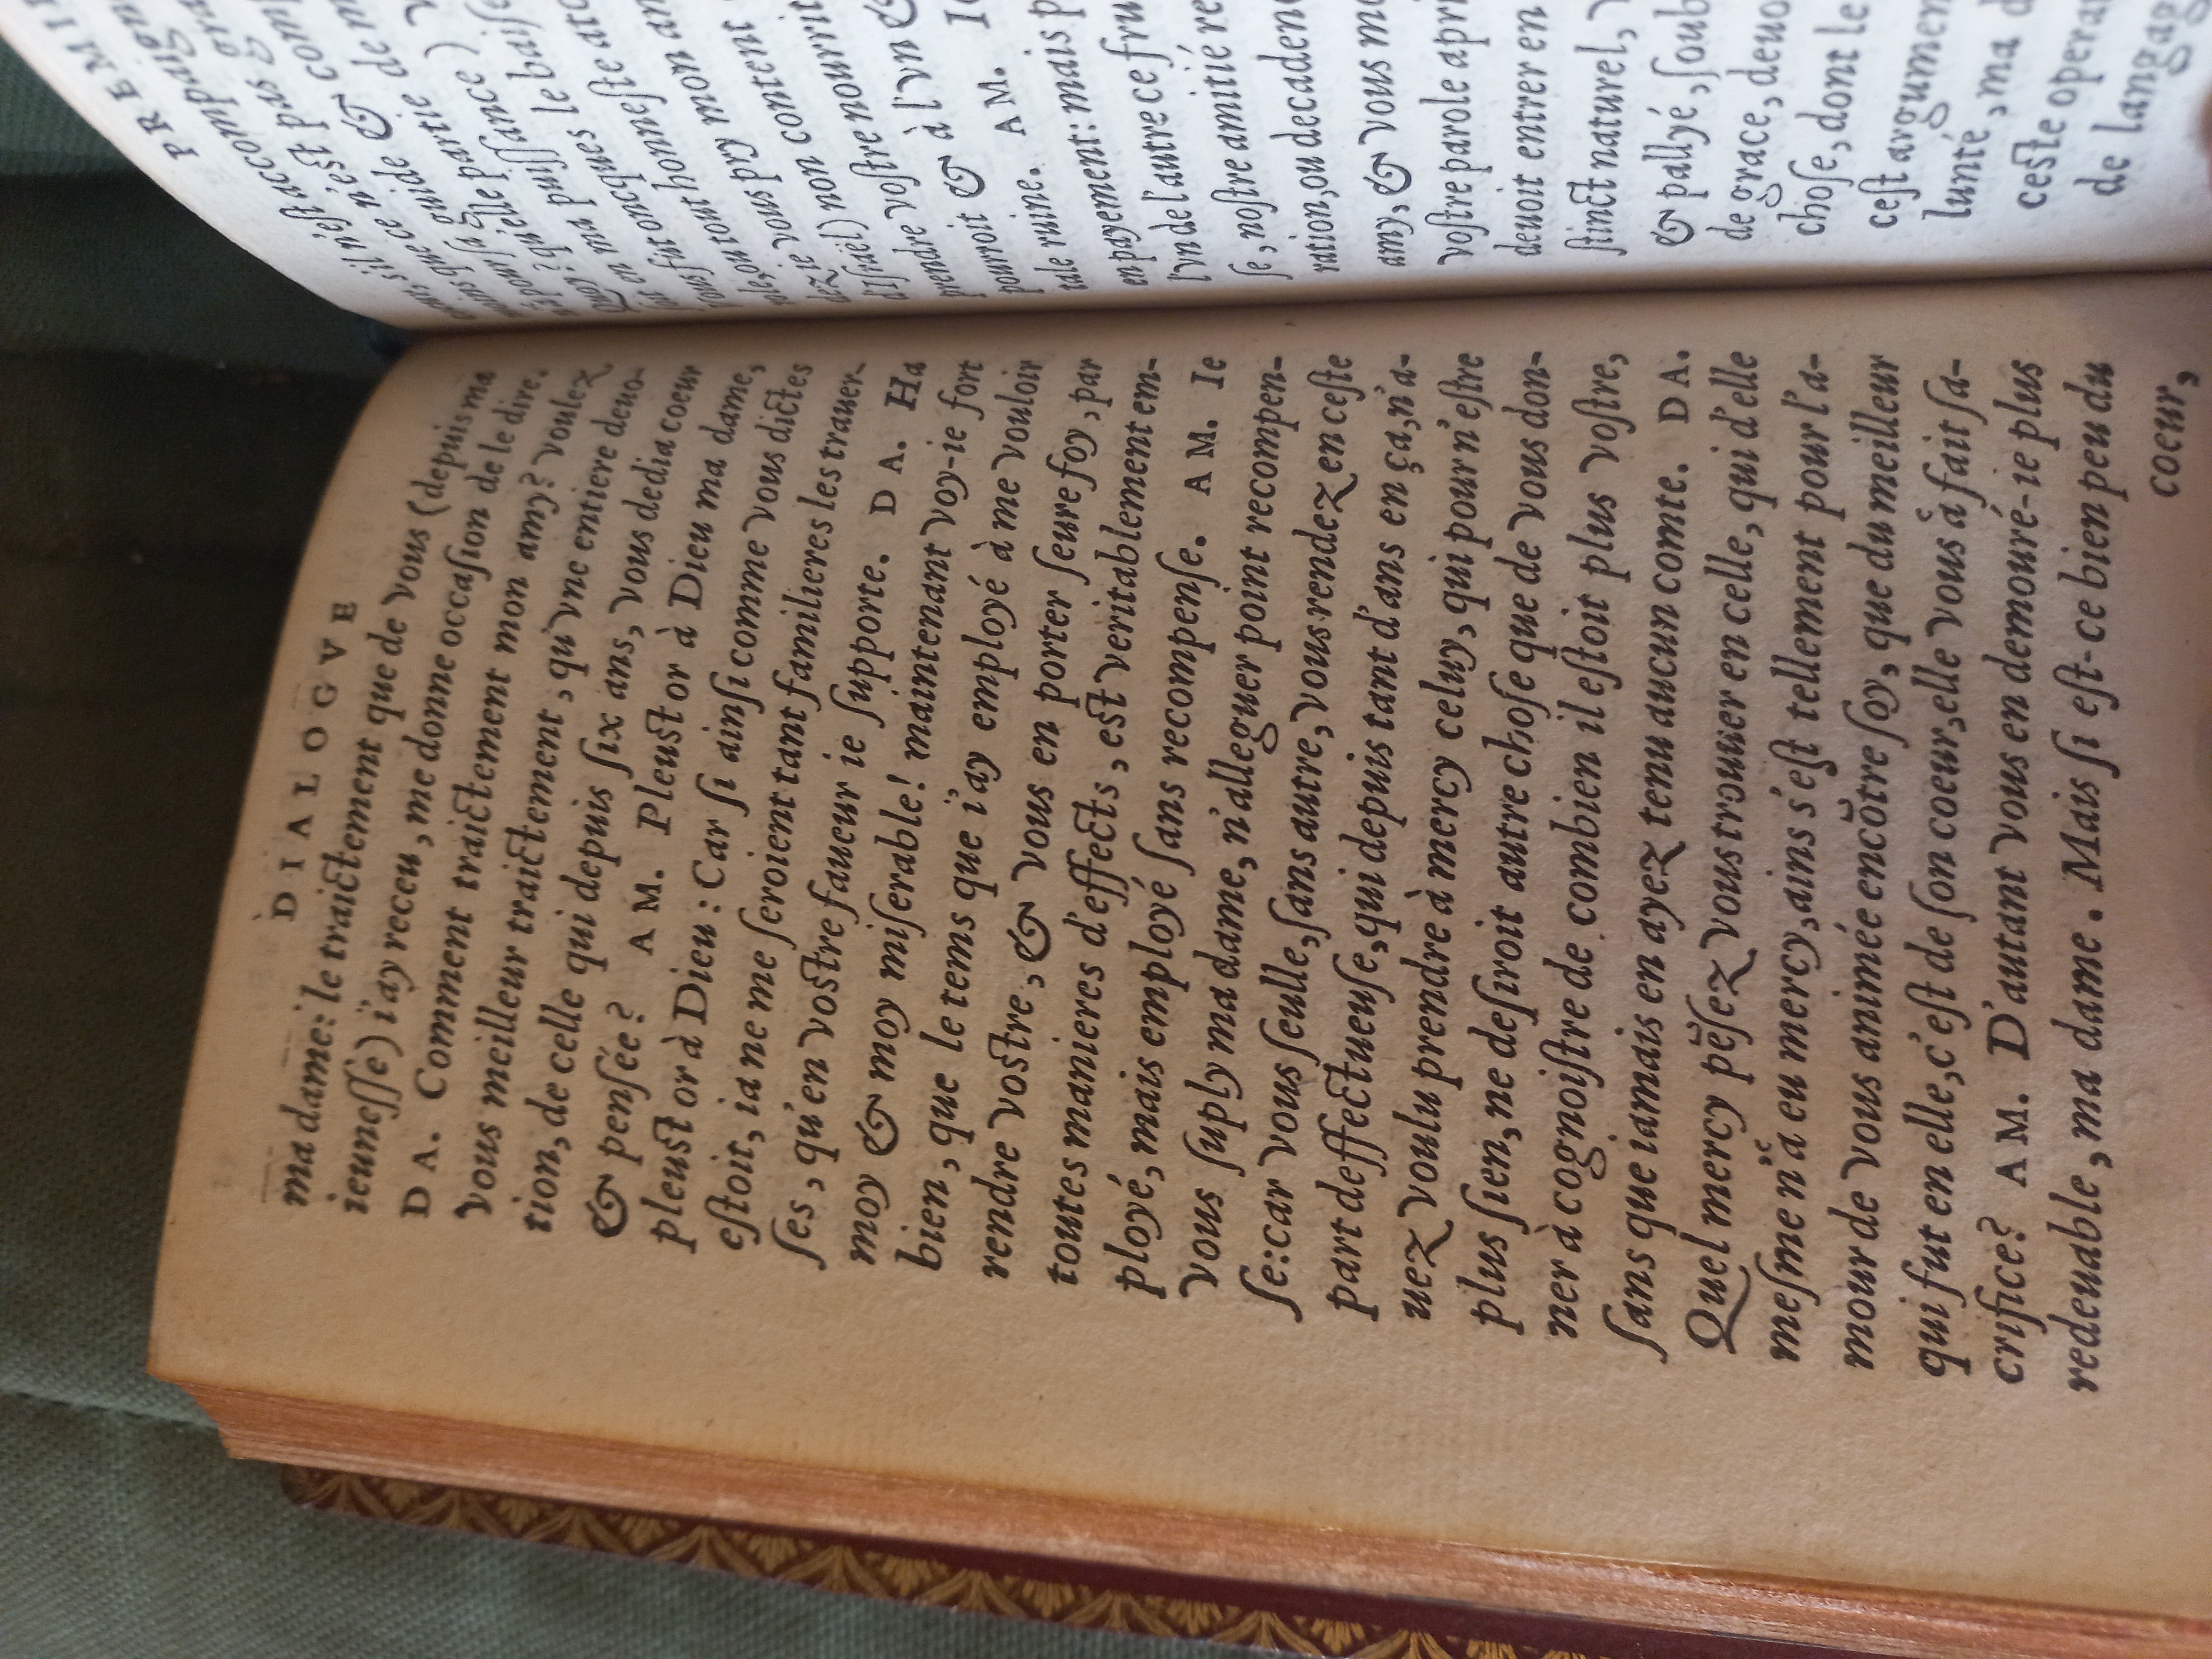 DIALOGVE
ma dame: le traictement que de vous (depuis ma
ieunesse) i'ay receu, me donne occasion de le dire.
DA. Comment traictement mon amy? voulez
vous meilleur traictement, qu'vne entiere deuo-
tion, de celle qui depuis six ans, vous dedia coeur
& pensée? AM. Pleust or à Dieu ma dame,
pleust or à Dieu: Car si ainsi comme vous dictes
estoit, ia ne me seroient tant familieres les trauer-
ses, qu'en vostre faueur ie supporte. DA. Ha
moy & moy miserable! maintenant voy-ie fort
bien, que le tems que i'ay employé à me vouloir
rendre vostre, & vous en porter seure foy, par
toutes manieres d'effects, est veritablement em-
ployé, mais employé sans recompense. AM. Ie
vous suply ma dame, n'alleguer point recompen-
se: car vous seulle, sans autre, vous rendez en ceste
part deffectueuse, qui depuis tant d'ans en ça, n'a-
uez voulu prendre à mercy celuy, qui pour n'estre
plus sien, ne desiroit autre chose que de vous don-
ner à cognoistre de combien il estoit plus vostre,
sans que iamais en ayez tenu aucun comte. DA.
Quel mercy pẽsez vous trouuer en celle, qui d'elle
mesme n'a eu mercy, ains s'est tellement pour l'a-
mour de vous animée encõtre soy, que du meilleur
qui fut en elle, c'est de son coeur, elle vous à fait sa-
crifice? AM. D'autant vous en demouré-ie plus
redeuable, ma dame. Mais si est-ce bien peu du
coeur,
PREMIE
& à l'vn &
tale ruine. AM. Ie
en payement: mais p
l'vn de l'autre ce fru
se, nostre amitié re
ration, ou decadenc
amy, & vous me
vostre parole apri
deuoit entrer en
stinct naturel,
& pallyé, soub
de grace, deuo
chose, dont le
cest argumen
lunté, ma d
ceste opera
de langag